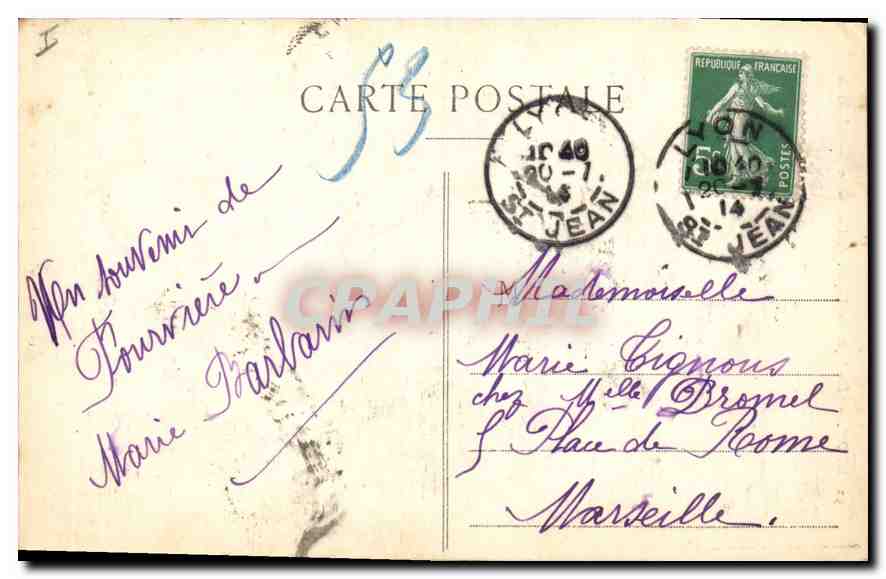 I
CARTE POSTALE
53
REPUBLIQUE FRANÇAISE
5c
POSTES
LYON
10 40
20 - 7
14
ST JEAN
LYON
10 40
20 - 7
14
ST JEAN
Un souvenir de
Fourvière
Marie Barbarin
CPRAPHIL
Mademoiselle
Marie Tignous
chez Melle Bromel
5 Place de Rome
Marseille.